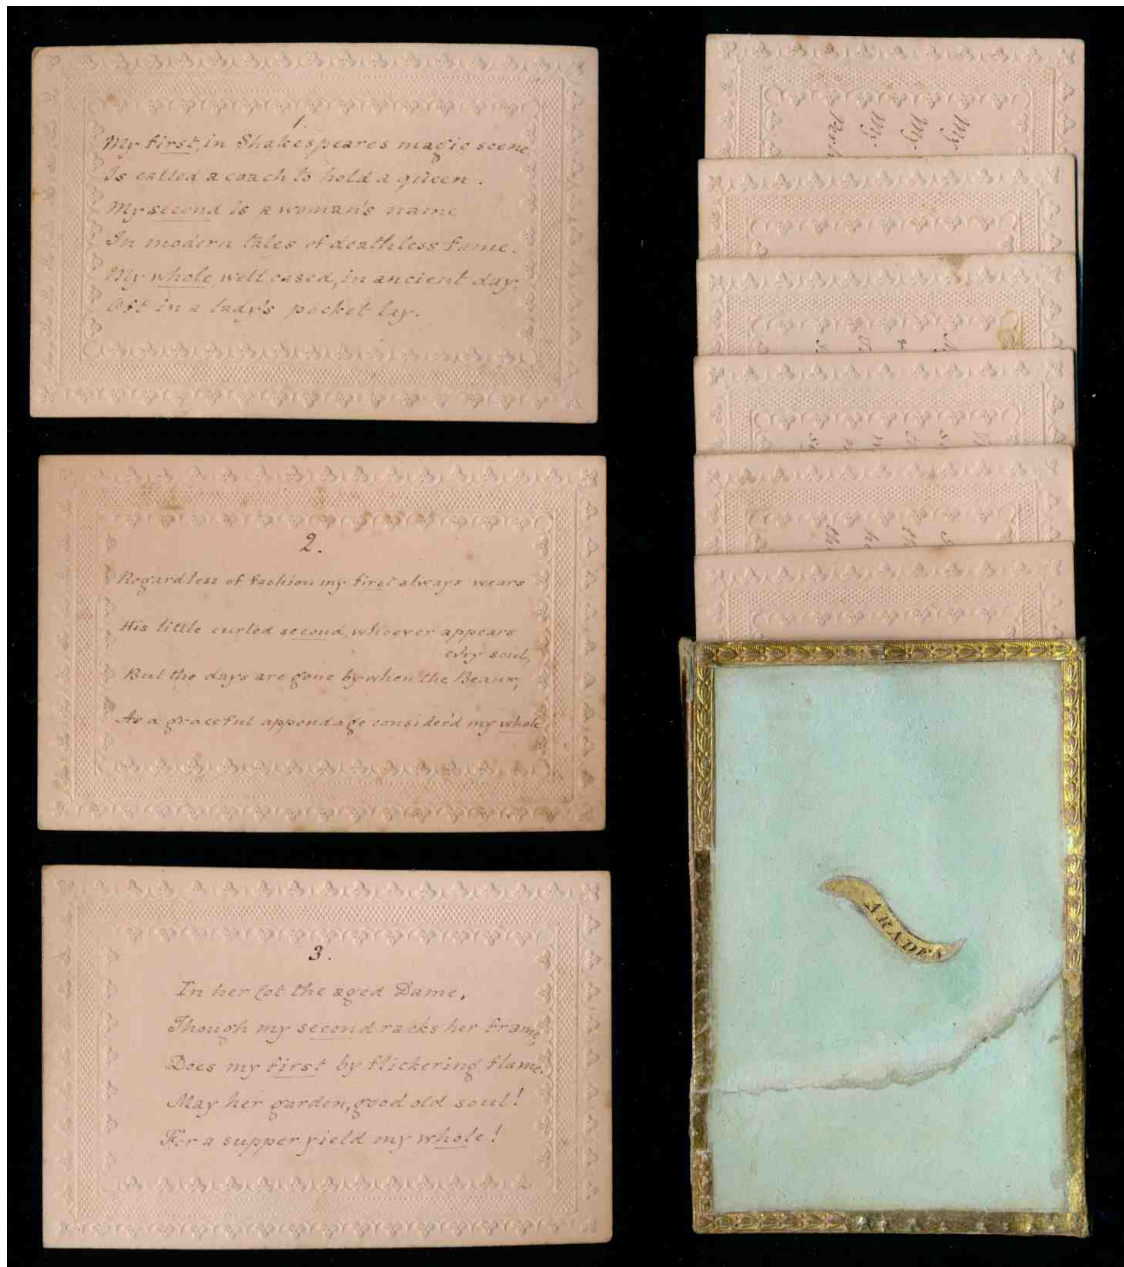 1
My first, in Shakespeares magic scene
Is called a coach to hold a queen.
My second is a woman's name
In modern tales of deathless fame.
My whole, well cased, in ancient day,
Oft in a lady's pocket lay.
2.
Regardless of fashion my first always wears
His little curled second, whoever appears
ev'ry soul,
But the days are gone by when the Beaux,
As a graceful appendage consider'd my whole
3.
In her Cot the aged Dame,
Though my second racks her frame,
Does my first by flickering flame.
May her garden, good old soul!
For a supper yield my whole!
My
My
My